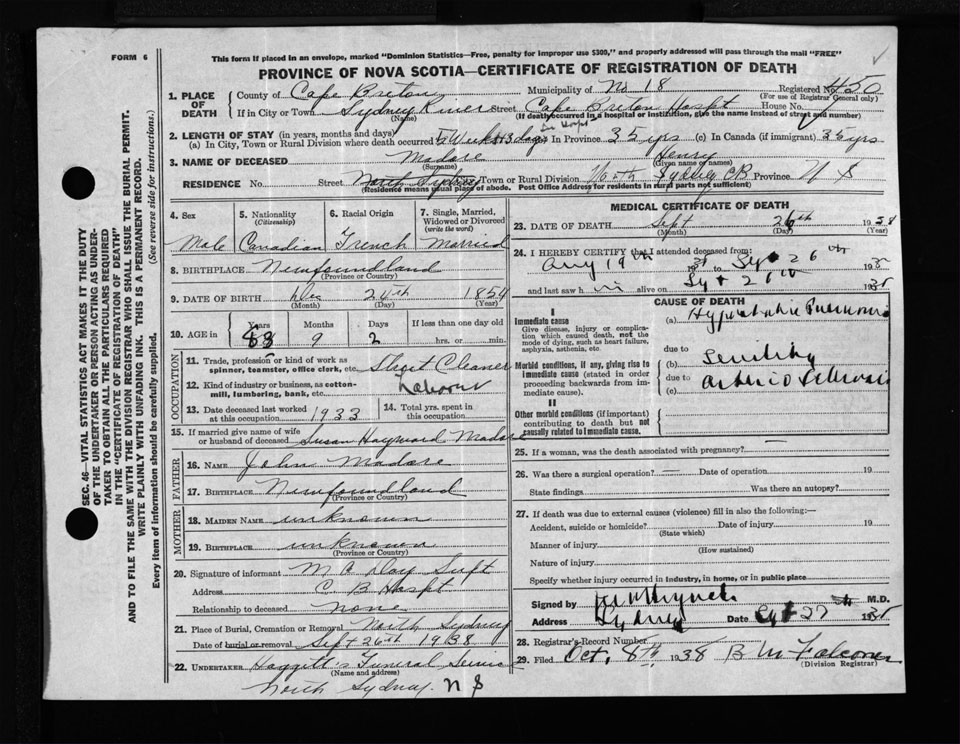 FORM 6
This form if placed in an envelope, marked "Dominion Statistics—Free, penalty for improper use $300," and properly addressed will pass through the mail "FREE"
PROVINCE OF NOVA SCOTIA—CERTIFICATE OF REGISTRATION OF DEATH
1. PLACE OF DEATH
County of Cape Breton Municipality of No 18 Registered No. 450
(For use of Registrar General only)
If in City or Town Sydney River Street Cape Breton Hospt House No.
(Name) (If death occurred in a hospital or institution, give the name instead of street and number)
2. LENGTH OF STAY (in years, months and days)
(a) In City, Town or Rural Division where death occurred 5 Weeks 3 days In Province 35 yrs (c) In Canada (if immigrant) 35 yrs
3. NAME OF DECEASED Madore Henry
(Surname) (Given name or names)
RESIDENCE No. Street North Sydney Town or Rural Division North Sydney CB Province N S
(Residence means usual place of abode. Post Office Address for residents in rural parts not sufficient)
4. Sex
Male
5. Nationality
(Citizenship)
Canadian
6. Racial Origin
French
7. Single, Married, Widowed or Divorced
(write the word)
Married
8. BIRTHPLACE Newfoundland
(Province or Country)
9. DATE OF BIRTH Dec 24th 1854
(Month) (Day) (Year)
10. AGE in
Years Months Days If less than one day old
83 9 2 hrs. or min.
OCCUPATION
11. Trade, profession or kind of work as spinner, teamster, office clerk, etc. Street Cleaner
12. Kind of industry or business, as cotton-mill, lumbering, bank, etc. Labourer
13. Date deceased last worked at this occupation 1933
14. Total yrs. spent in this occupation
15. If married give name of wife or husband of deceased Susan Hayward Madore
FATHER
16. NAME John Madore
17. BIRTHPLACE Newfoundland
(Province or Country)
MOTHER
18. MAIDEN NAME unknown
19. BIRTHPLACE unknown
(Province or Country)
20. Signature of informant M A Day Supt
Address C. B Hospt
Relationship to deceased none
21. Place of Burial, Cremation or Removal North Sydney
Date of burial or removal Sept 26th 1938
22. UNDERTAKER Haggett's Funeral Service
(Name and address)
North Sydney. N S
MEDICAL CERTIFICATE OF DEATH
23. DATE OF DEATH Sept 26th 1938
(Month) (Day) (Year)
24. I HEREBY CERTIFY that I attended deceased from:
Aug 19th 1938 to Sept 26th 1938
and last saw h im alive on Sept 26th 1938
CAUSE OF DEATH
I
Immediate cause
Give disease, injury or complication which caused death, not the mode of dying, such as heart failure, asphyxia, asthenia, etc.
(a) Hypostatic Pneumonia
due to
Morbid conditions, if any, giving rise to immediate cause (stated in order proceeding backwards from immediate cause).
(b) Senility
due to
(c) Arterio Sclerosis
II
Other morbid conditions (if important) contributing to death but not causally related to immediate cause.
25. If a woman, was the death associated with pregnancy? —
26. Was there a surgical operation? — Date of operation 19
State findings Was there an autopsy?
27. If death was due to external causes (violence) fill in also the following:—
Accident, suicide or homicide? Date of injury 19
(State which)
Manner of injury
(How sustained)
Nature of injury
Specify whether injury occurred in industry, in home, or in public place
Signed by M.D.
Address Sydney Date Sept 27th 1938
28. Registrar's Record Number
29. Filed Oct. 8th 1938 B M Falconer
(Division Registrar)
SEC. 46—VITAL STATISTICS ACT MAKES IT THE DUTY OF THE UNDERTAKER OR PERSON ACTING AS UNDERTAKER TO OBTAIN ALL THE PARTICULARS REQUIRED IN THE "CERTIFICATE OF REGISTRATION OF DEATH"
AND TO FILE THE SAME WITH THE DIVISION REGISTRAR WHO SHALL ISSUE THE BURIAL PERMIT.
WRITE PLAINLY WITH UNFADING INK. THIS IS A PERMANENT RECORD.
Every item of information should be carefully supplied. (See reverse side for instructions.)